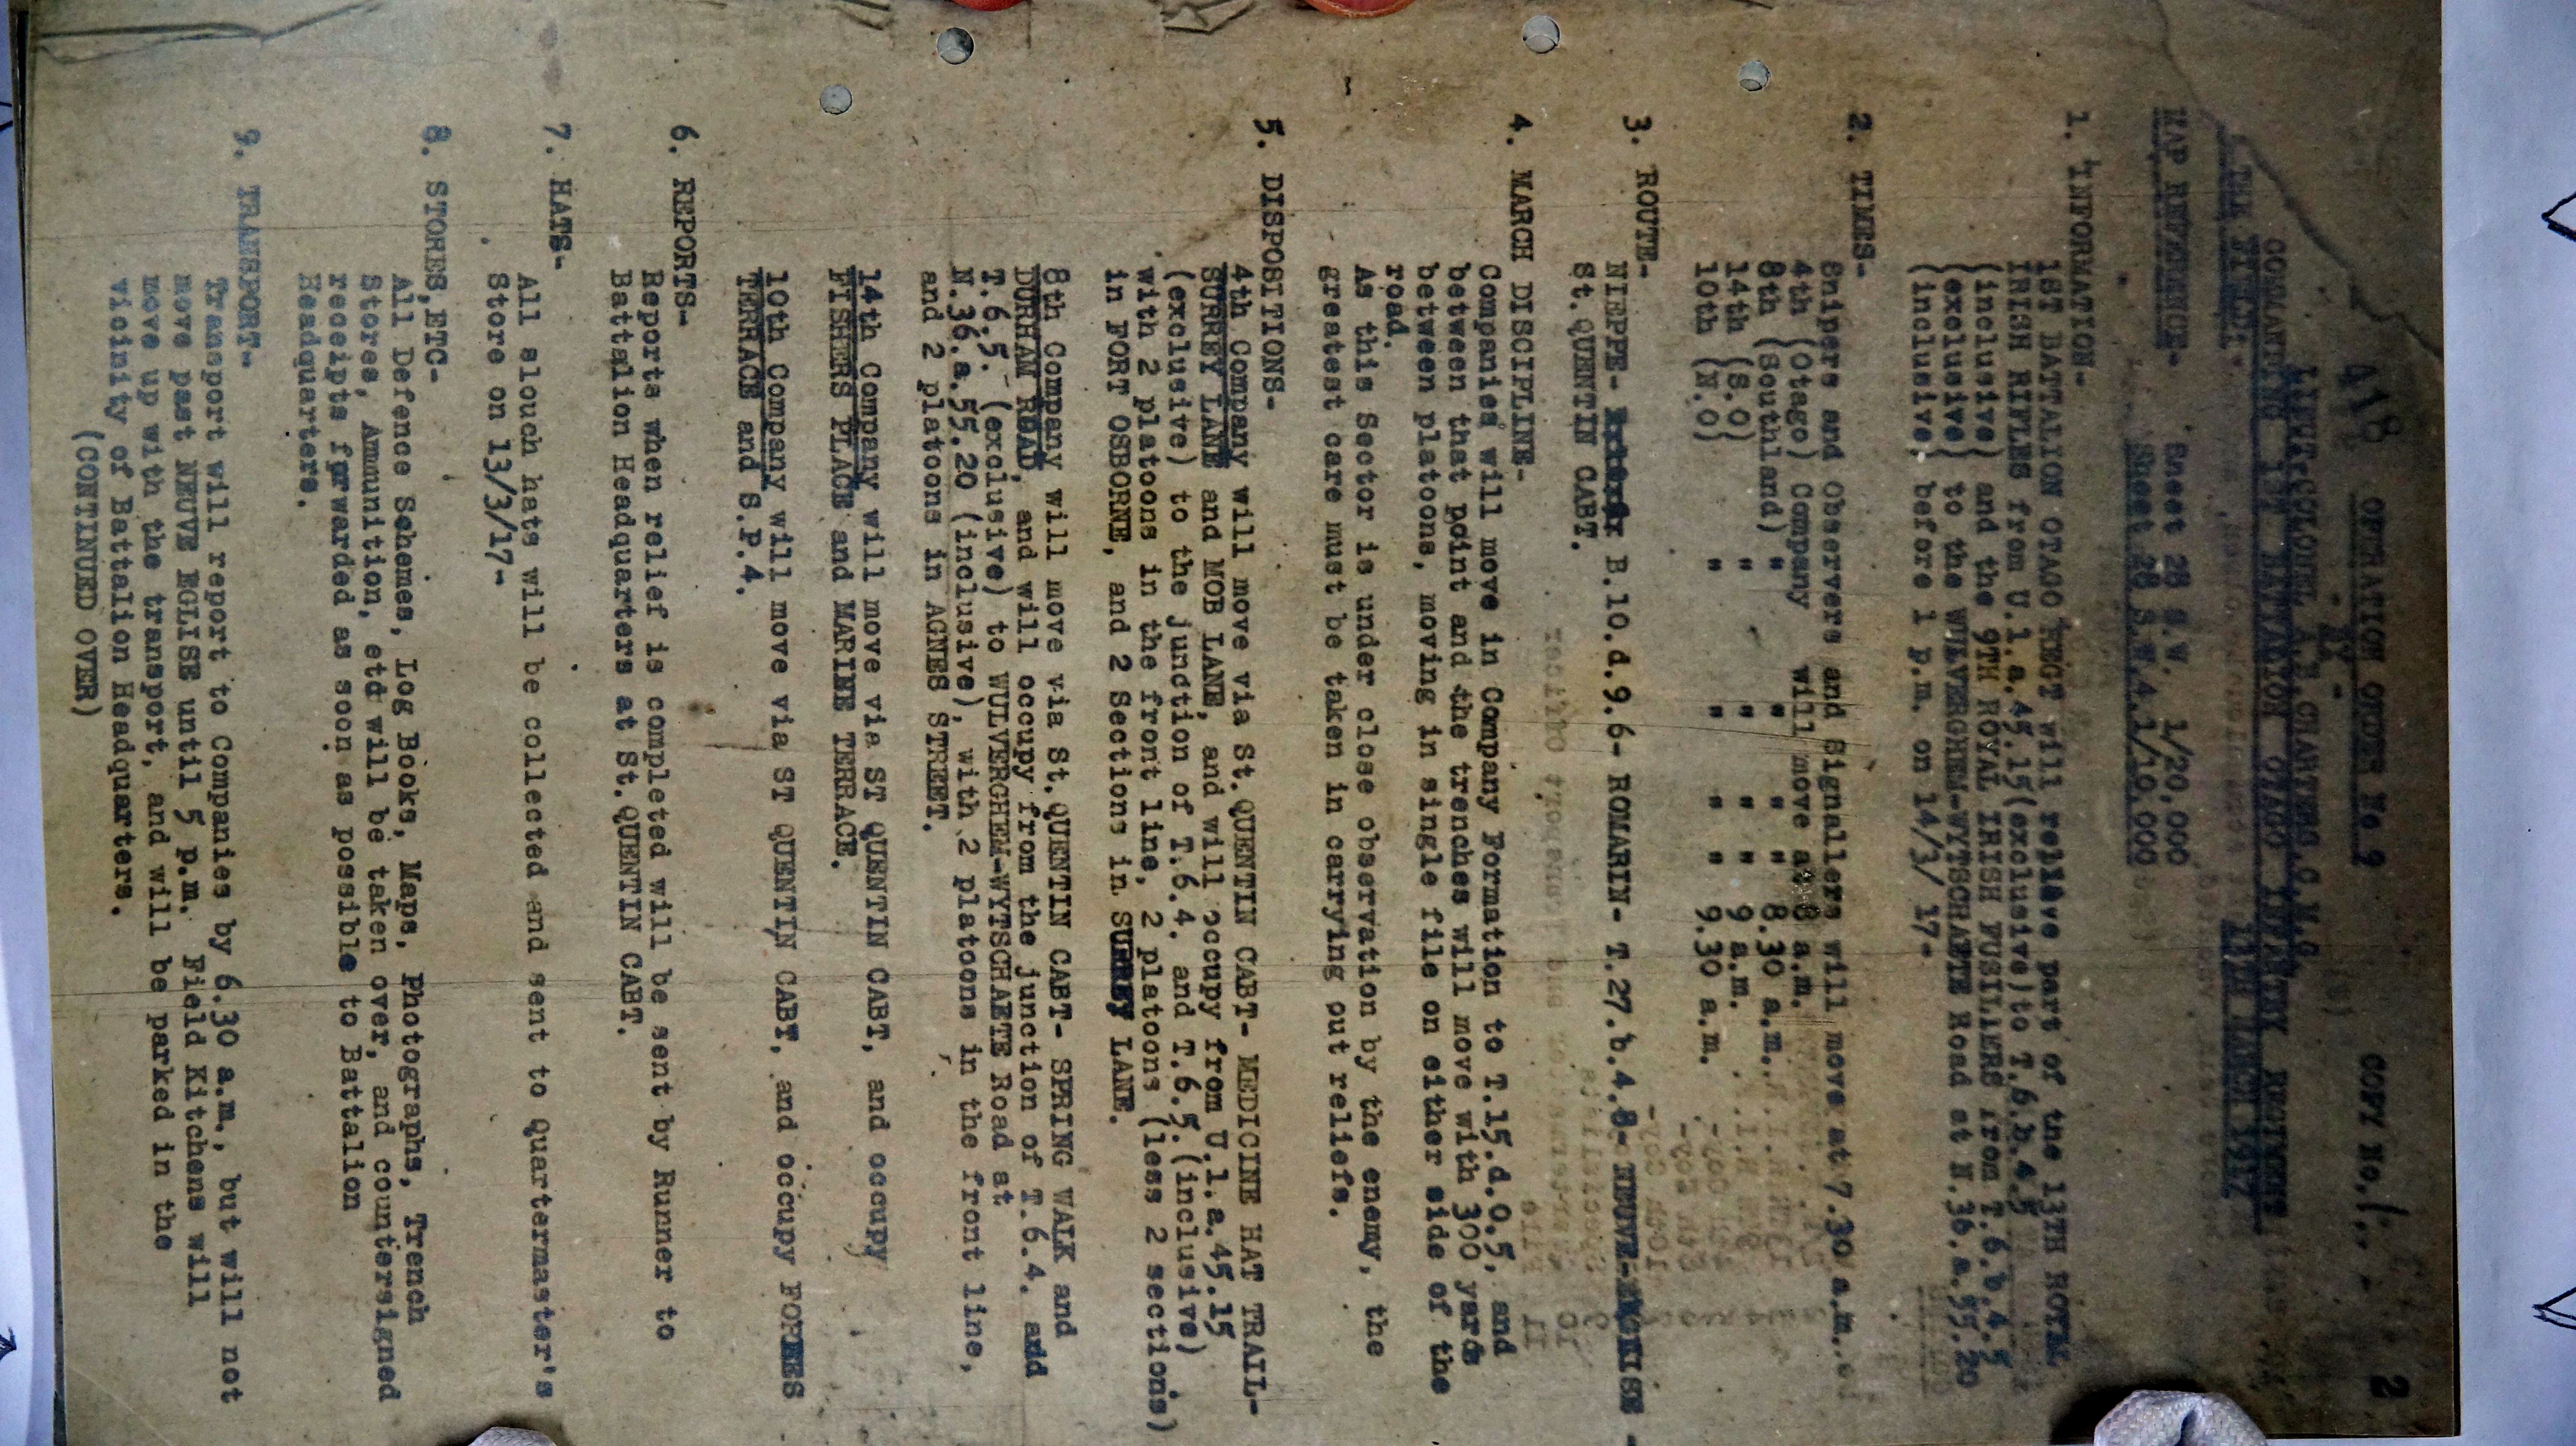 418 OPERATION ORDER No 9 COPY No.1.- 2
- BY -
LIEUT-COLONEL A.B.CHARTERS.C.M.G.
COMMANDING 1ST BATTALION OTAGO INFANTRY REGIMENT
IN THE FIELD. 11TH MARCH 1917.
MAP REFERENCE- Sheet 28 S.W. 1/20,000
Sheet 28 S.W.4.1/10,000
1. INFORMATION-
1ST BATTALION OTAGO REGT will relieve part of the 13TH ROYAL
IRISH RIFLES from U.1.a.45.15(exclusive)to T.6.b.4.5
(inclusive) and the 9TH ROYAL IRISH FUSILIERS from T.6.b.4.5
(exclusive) to the WULVERGHEM-WYTSCHAETE Road at N.36.a.55.20
(inclusive) before 1 p.m. on 14/3/ 17-
2. TIMES-
Snipers and Observers and Signallers will move at 7.30 a.m.
4th (Otago) Company will move at 8 a.m.
8th (Southland) " " " " 8.30 a.m.
14th (S.O) " " " " 9 a.m.
10th (N.O) " " " " 9.30 a.m.
3. ROUTE-
NIEPPE- B.10.d.9.6- ROMARIN- T.27.b.4.8- NEUVE-EGLISE -
St.QUENTIN CABT.
4. MARCH DISCIPLINE-
Companies will move in Company Formation to T.15.d.0.5, and
between that point and the trenches will move with 300 yards
between platoons, moving in single file on either side of the
road.
As this Sector is under close observation by the enemy, the
greatest care must be taken in carrying out reliefs.
5. DISPOSITIONS-
4th Company will move via St.QUENTIN CABT- MEDICINE HAT TRAIL-
SURREY LANE and MOB LANE, and will occupy from U.1.a.45.15
(exclusive) to the junction of T.6.4. and T.6.5.(inclusive)
with 2 platoons in the front line, 2 platoons (less 2 sections)
in FORT OSBORNE, and 2 Sections in SURREY LANE.
8th Company will move via St.QUENTIN CABT- SPRING WALK and
DURHAM ROAD, and will occupy from the junction of T.6.4. and
T.6.5. (exclusive) to WULVERGHEM-WYTSCHAETE Road at
N.36.a.55.20 (inclusive), with 2 platoons in the front line,
and 2 platoons in AGNES STREET.
14th Company will move via ST QUENTIN CABT, and occupy
FISHERS PLACE and MARINE TERRACE.
10th Company will move via ST QUENTIN CABT, and occupy FORBES
TERRACE and S.P.4.
6. REPORTS-
Reports when relief is completed will be sent by Runner to
Battalion Headquarters at St.QUENTIN CABT.
7. HATS-
All slouch hats will be collected and sent to Quartermaster's
Store on 13/3/17-
8. STORES,ETC-
All Defence Schemes, Log Books, Maps, Photographs, Trench
Stores, Ammunition, etc will be taken over, and countersigned
receipts forwarded as soon as possible to Battalion
Headquarters.
9. TRANSPORT-
Transport will report to Companies by 6.30 a.m., but will not
move past NEUVE EGLISE until 5 p.m. Field Kitchens will
move up with the transport, and will be parked in the
vicinity of Battalion Headquarters.
(CONTINUED OVER)